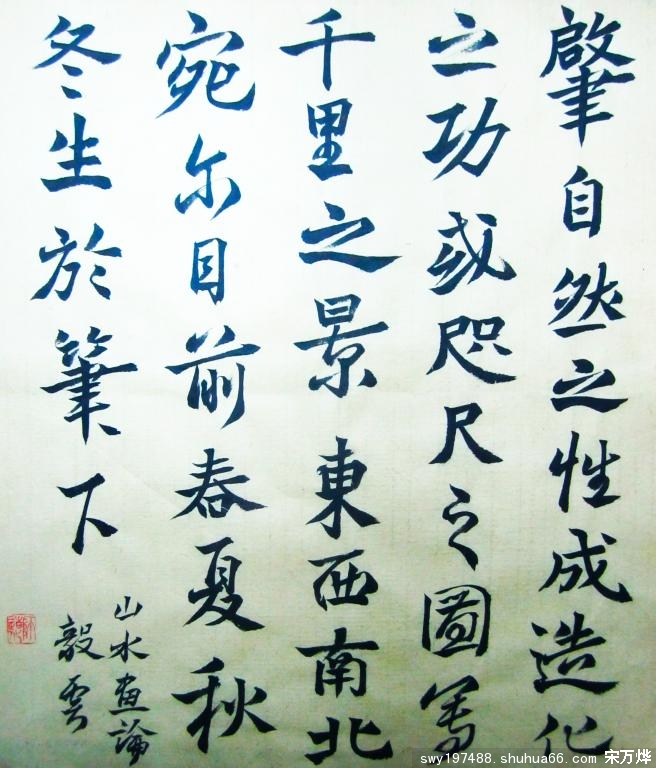 肇自然之性成造化
之功或咫尺之圖寫
千里之景東西南北
宛尔目前春夏秋
冬生於筆下
山水畫論
毅雲
swy197488. shuhua66. com 宋万烨